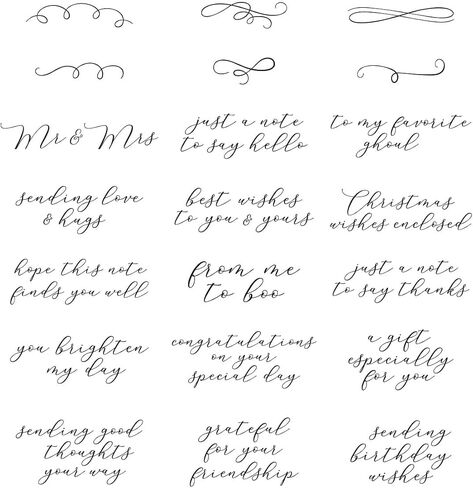 Mr & Mrs
just a note
to say hello
to my favorite
ghoul
sending love
& hugs
best wishes
to you & yours
Christmas
wishes enclosed
hope this note
finds you well
from me
to boo
just a note
to say thanks
you brighten
my day
congratulations
on your
special day
a gift
especially
for you
sending good
thoughts
your way
grateful
for your
friendship
sending
birthday
wishes